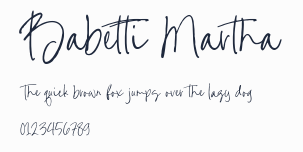 Babetti Martha
The quick brown fox jumps over the lazy dog
0123456789